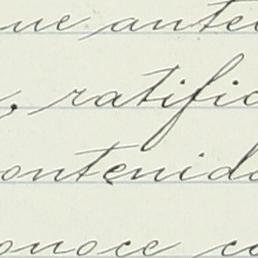 ue ante
, ratific
ontenido
onoce co